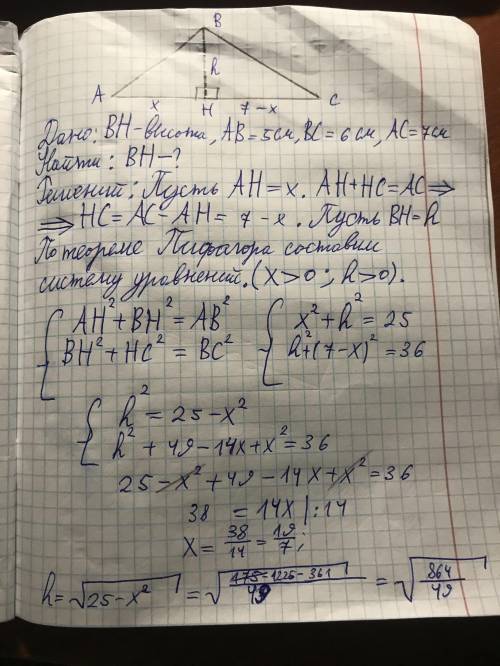 B
h
A x H 7-x C
Дано: BH-высота, AB=5см, BC=6см, AC=7см
Найти: BH-?
Решений: Пусть AH=x. AH+HC=AC⇒
⇒ HC=AC-AH= 7-x. Пусть BH=h
По теореме Пифагора составим
систему уравнений. (x>0; h>0).
{ AH²+BH²=AB² { x²+h²=25
{ BH²+HC²=BC² { h²+(7-x)²=36
{ h²=25-x²
{ h²+49-14x+x²=36
25-x²+49-14x+x²=36
38 = 14x |:14
x= 38/14 = 19/7;
h=√(25-x²) = √((1225-361)/49) = √(864/49)